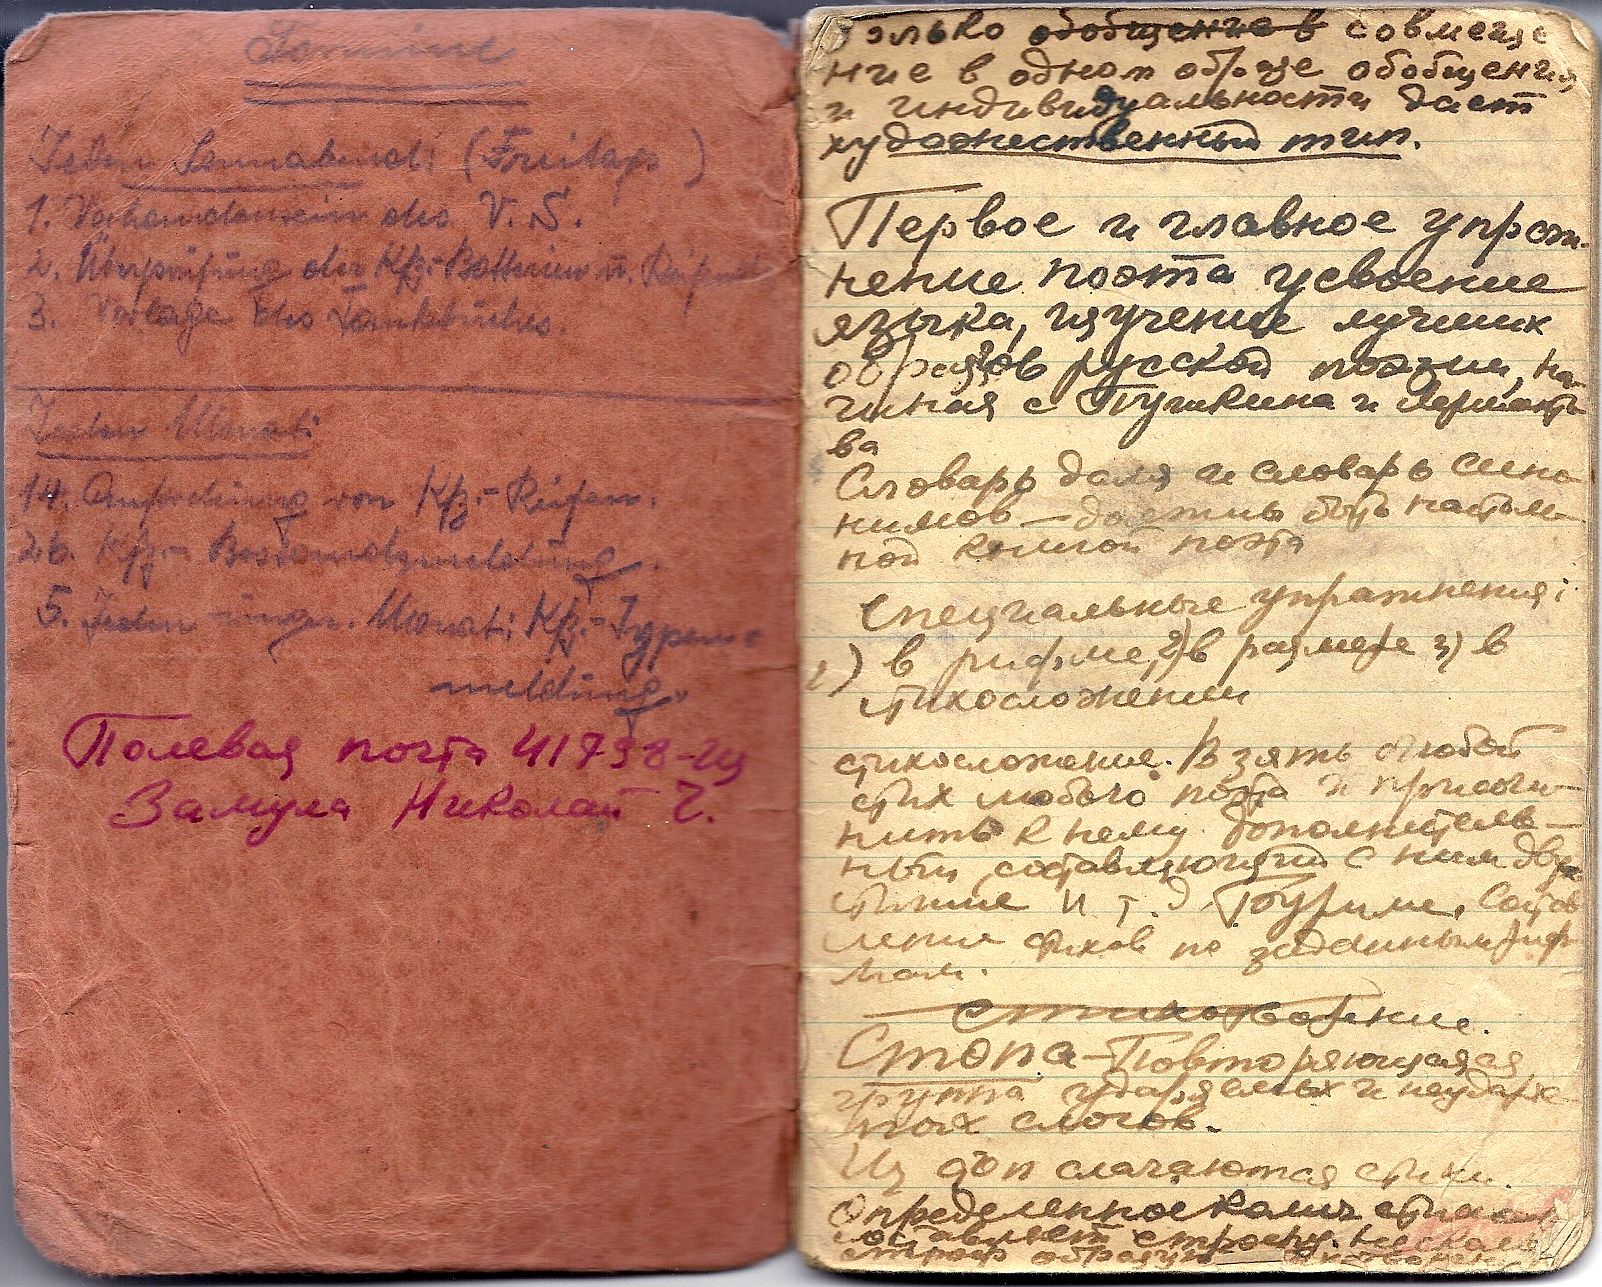 Termine
Jeden Sonnabend: (Freitags)
1. Vorhandensein des V. S.
2. Überprüfung der Kfz.-Batterien u. Reifen
3. Vorlage des Tankbuches.
Jeden Monat:
14. Anforderung von Kfz.-Reifen.
26. Kfz.- Bestandsmeldung.
5. Jeden unger. Monat: Kfz.-Typen-
meldung.
Полевая почта 41798-Щ
Замула Николай Г.
только обобщение в совмеще
ние в одном образе обобщения
и индивидуальности дает
художественный тип.
Первое и главное упраж-
нение поэта усвоение
языка, изучение лучших
образцов русской поэзии, на-
чиная с Пушкина и Лермонто
ва
Словарь даля и словарь сино
нимов – должны быть настоль-
ной книгой поэта
Специальные упражнения:
1) в рифме, 2) в размере 3) в
стихосложении
стихосложение. Взять любой
стих любого поэта и присочи-
нить к нему дополнитель-
ный, составляющий с ним дву
стишие и т. д. Буриме. Состав
ление стихов по заданным риф
мам.
стихотворение.
Стопа – Повторяющаяся
группа ударяемых и неударяе-
мых слогов.
Из стоп слагаются стихи.
Определенное колич. стихов
составляет строфу. Несколько
строф образуют